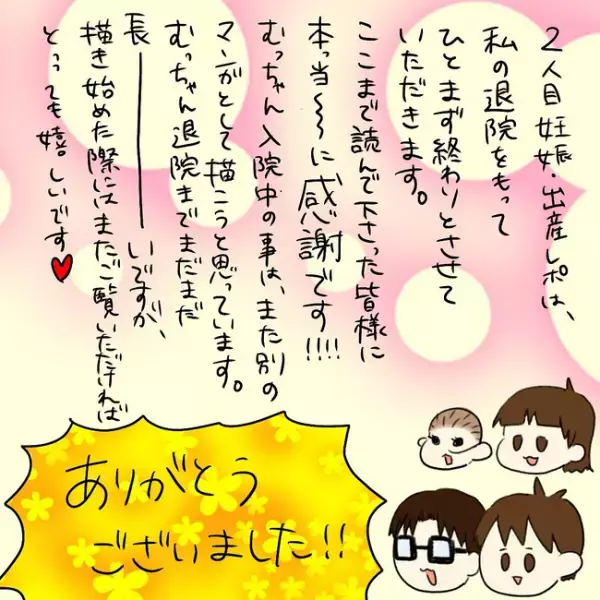 2人目妊娠・出産レポは、
私の退院をもって
ひとまず終わりとさせて
いただきます。
ここまで読んで下さった皆様に
本っ当〜〜に感謝です!!!!
むっちゃん入院中の事は、また別の
マンガとして描こうと思っています。
むっちゃん退院までまだまだ
長――――いですが、
描き始めた際にはまたご覧いただければ
とっても嬉しいです♥
ありがとう
ございました!!